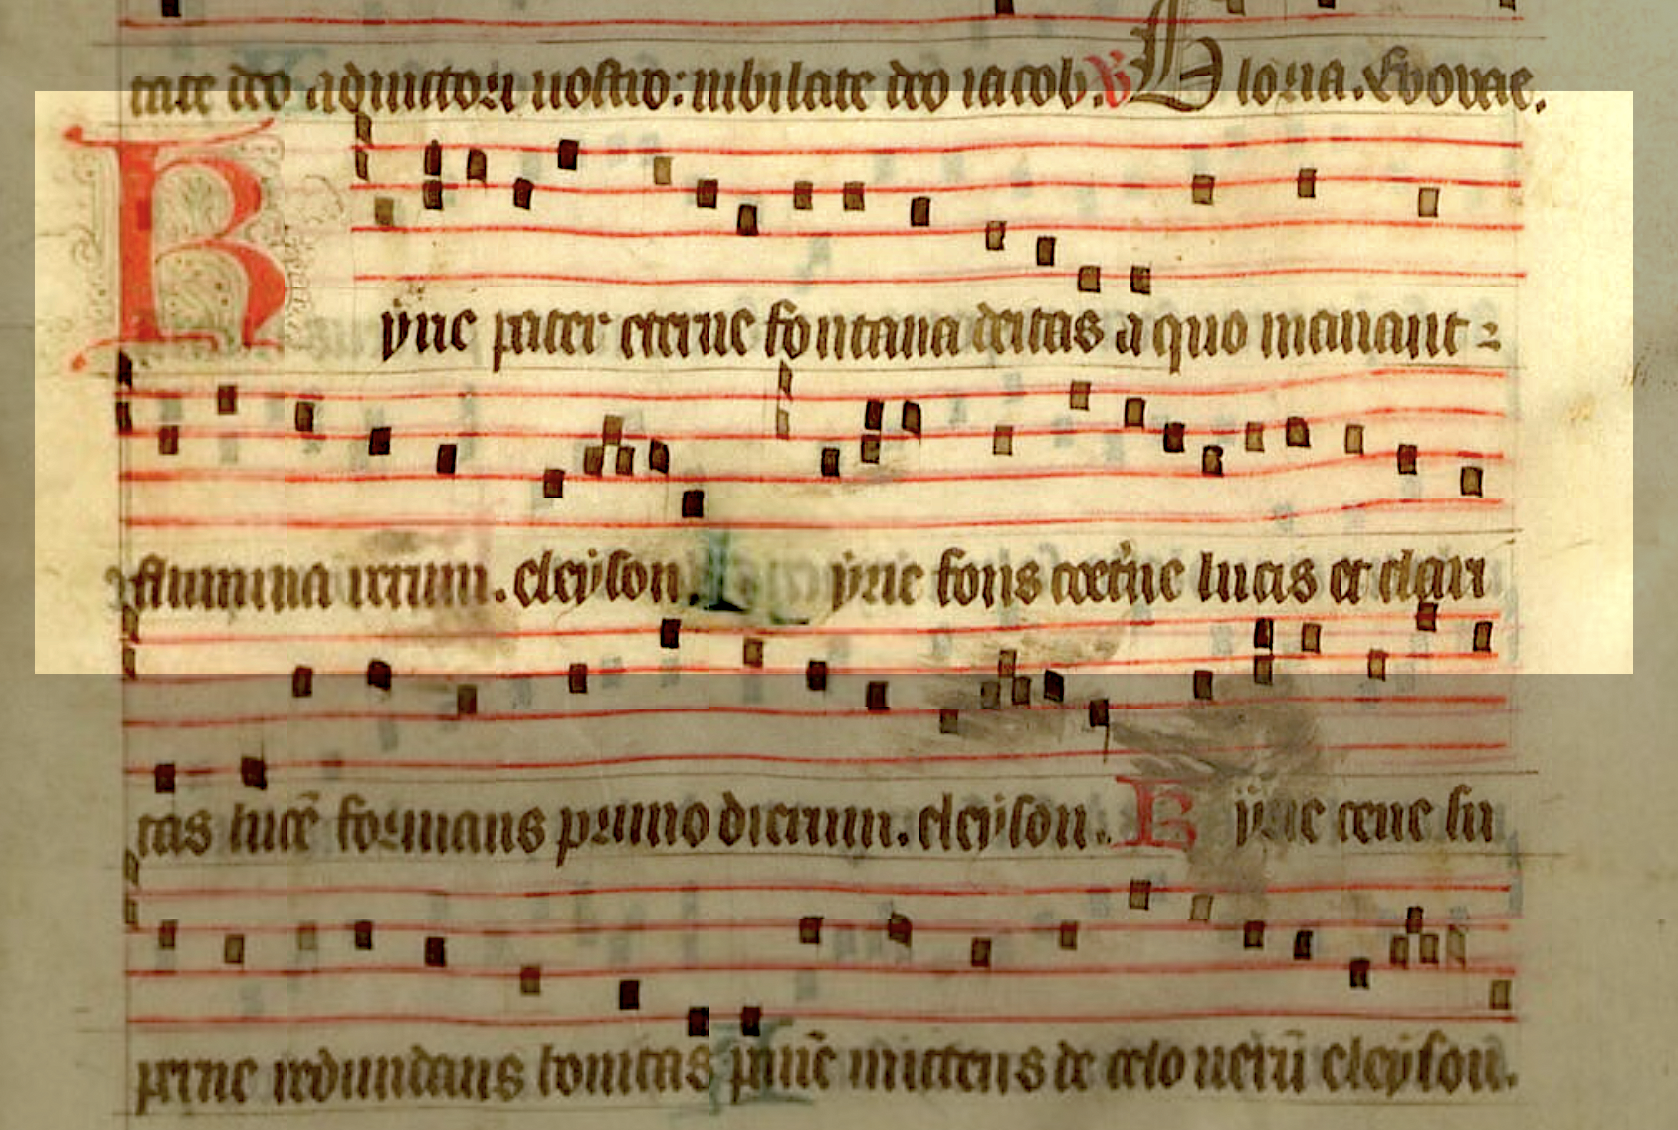 tate deo adiutori nostro: iubilate deo iacob. V Gloria. Evovae.
Kyrie pater eterne fontana deitas a quo manant
flumina rerum. eleyson. K yrie fons lucis et clari
tas lucē formans primo dierum. eleyson. K yrie
perne redundans bonitas mittens de celo eleyson.